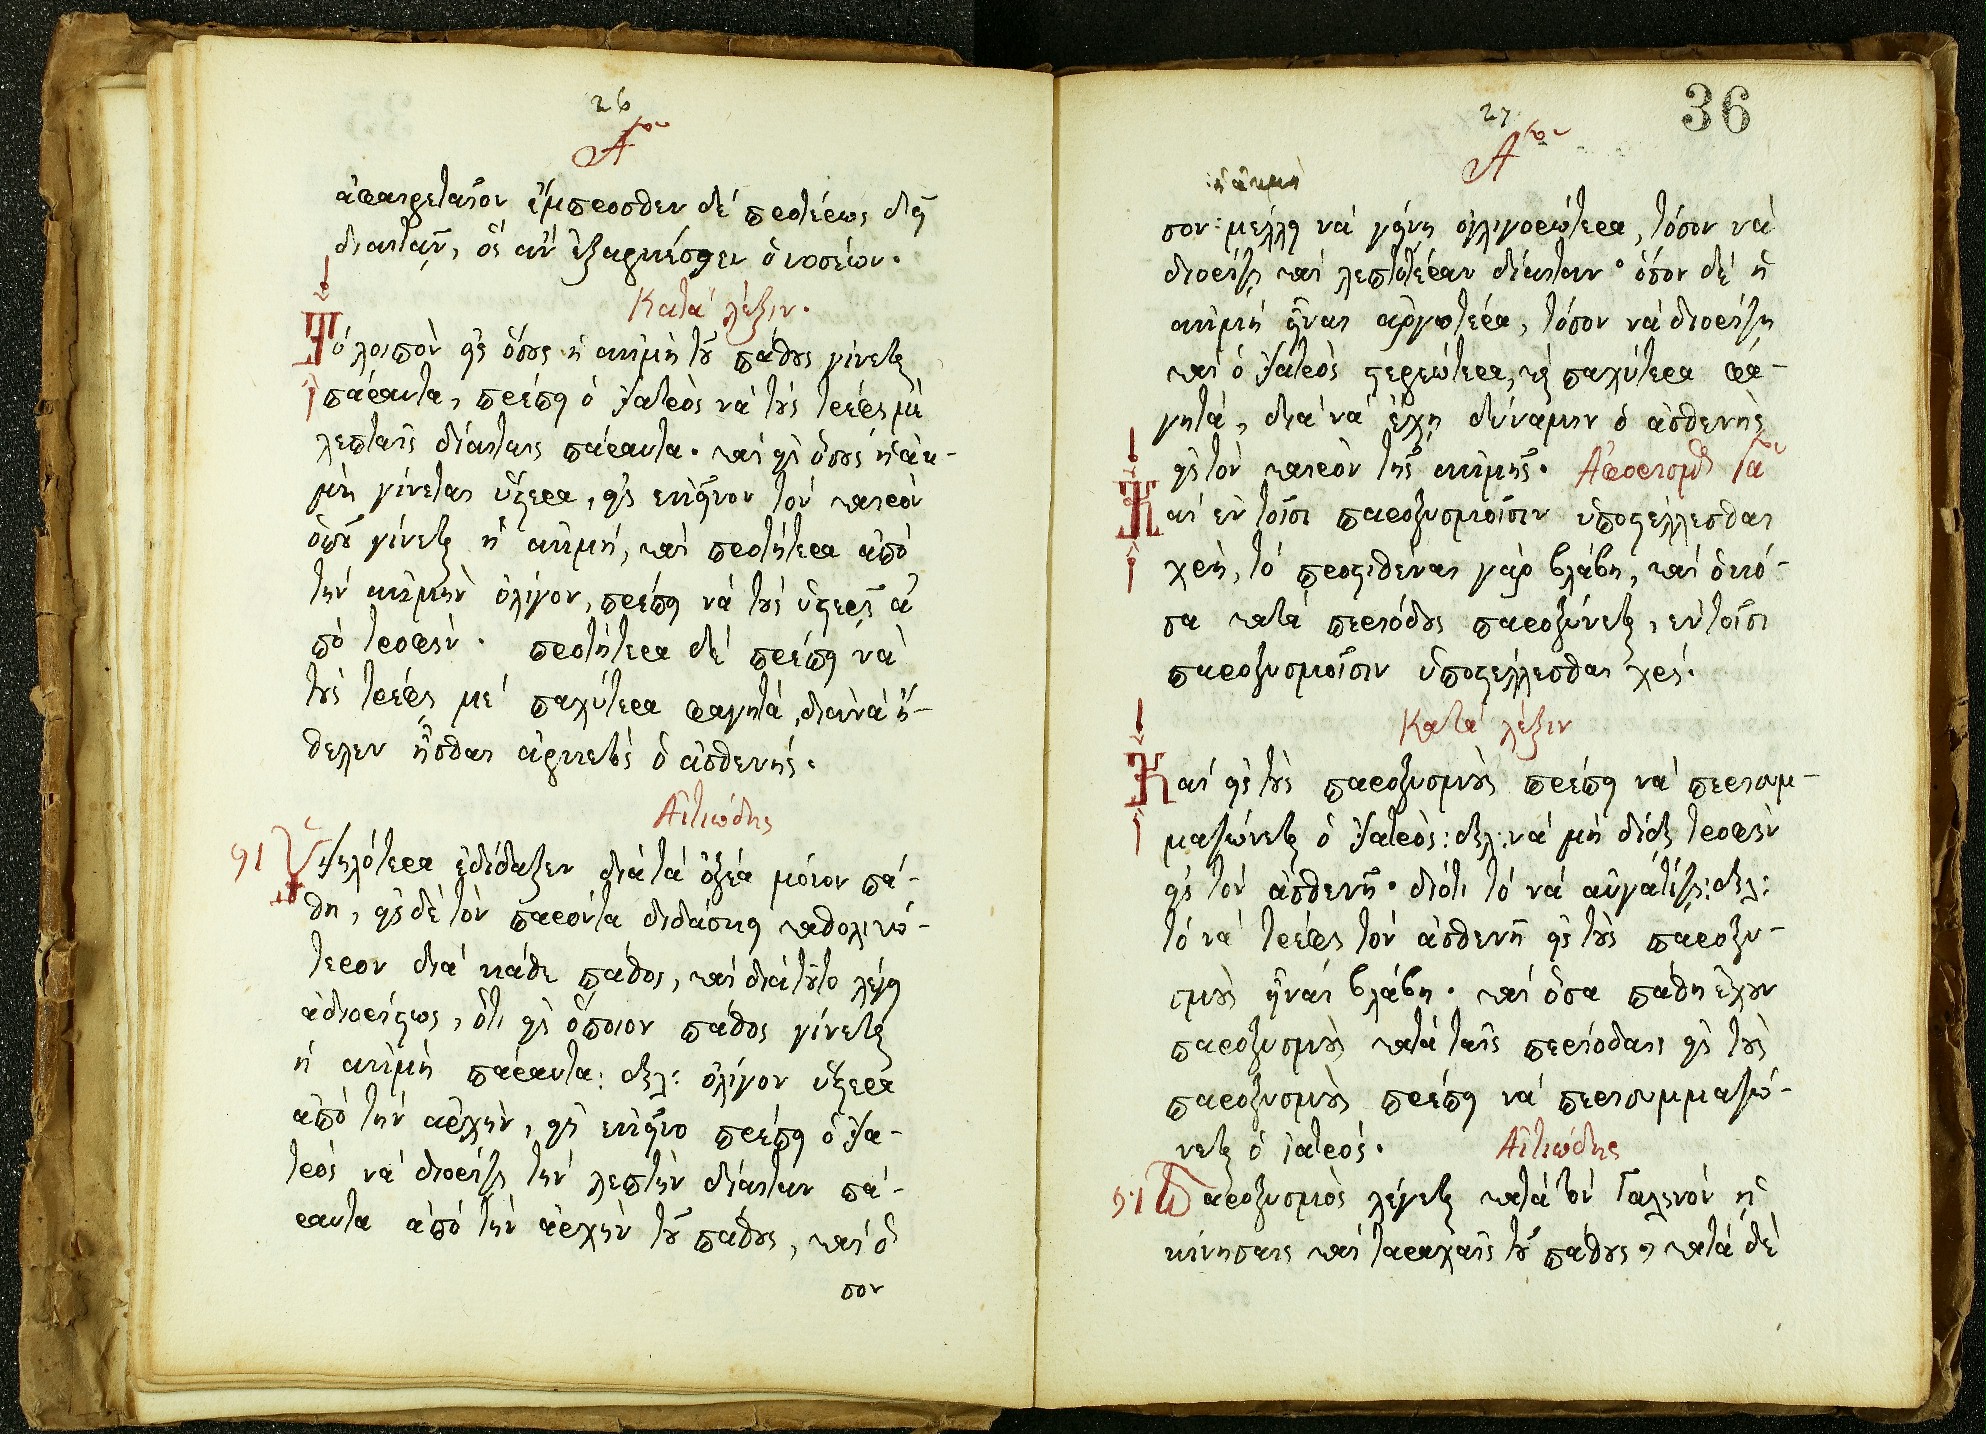 26
Α^ον
ἀφαιρεταῖον ἔμπροσθεν δὲ προτέρως δεῖ
διαιτᾶν, ὡς ἂν ἐξαρκέσῃεν ὁ νοσέων.
Κατὰ λέξιν.
Τὸ λοιπὸν εἰς ὅσους ἡ ἀκμὴ τοῦ πάθους γίνεται
πάραυτα, πρέπει ὁ ἰατρὸς νὰ τοὺς τρέφῃ μὲ
λεπταῖς δίαιταις πάραυτα. καὶ εἰς ὅσους ἡ ἀκ-
μὴ γίνεται ὕστερα, εἰς ἐκεῖνον τὸν καιρὸν
ὁποῦ γίνεται ἡ ἀκμή, καὶ προτήτερα ἀπὸ
τὴν ἀκμὴν ὀλίγον, πρέπει νὰ τοὺς ὑστερῇ ἀ
πὸ τροφὴν. προτήτερα δὲ πρέπει νὰ
τοὺς τρέφῃ μὲ παχύτερα φαγητά, διὰ νὰ ἤ-
θελεν ἦσθαι ἀρκετὸς ὁ ἀσθενής.
Αἰτιώδης
91 Ὑψηλότερα ἐδίδαξεν διὰ τὰ ὀξέα μόνον πά-
θη, εἰς δὲ τὸν παρόντα διδάσκει καθολικώ-
τερον διὰ κάθε πάθος, καὶ διὰ τοῦτο λέγει
ἀδιορίστως, ὅτι εἰς ὅποιον πάθος γίνεται
ἡ ἀκμὴ πάραυτα: δηλ: ὀλίγον ὕστερα
ἀπὸ τὴν ἀρχὴν, εἰς ἐκεῖνο πρέπει ὁ ἰα-
τρὸς νὰ διορίζῃ τὴν λεπτὴν δίαιταν πά-
ραυτα ἀπὸ τὴν ἀρχὴν τοῦ πάθους, καὶ ὅ
σον
27
36
Α^ον
ἡ ἀκμὴ
σον: μέλλει νὰ γένῃ ὀγλιγορώτερα, τόσον νὰ
διορίζῃ καὶ λεπτοτέραν δίαιταν· ὅσον δὲ ἡ
ἀκμὴ εἶναι ἀργοτέρα, τόσον νὰ διορίζῃ
καὶ ὁ ἰατρὸς στερεώτερα, καὶ παχύτερα φα-
γητά, διὰ νὰ ἔχῃ δύναμιν ὁ ἀσθενὴς
εἰς τὸν καιρὸν τῆς ἀκμῆς. Ἀφορισμὸς ια^ον
Καὶ ἐν τοῖσι παροξυσμοῖσιν ὑποστέλλεσθαι
χρὴ, τὸ προστιθέναι γὰρ βλάβη, καὶ ὁκό-
σα κατὰ περιόδους παροξύνεται, ἐν τοῖσι
παροξυσμοῖσιν ὑποστέλλεσθαι χρή.
Κατὰ λέξιν
Καὶ εἰς τοὺς παροξυσμοὺς πρέπει νὰ περισυμ-
μαζώνεται ὁ ἰατρὸς: δηλ: νὰ μὴ δίδῃ τροφὴν
εἰς τὸν ἀσθενῆ. διότι τὸ νὰ αὐγατίζῃ: δηλ:
τὸ νὰ τρέφῃ τὸν ἀσθενῆ εἰς τοὺς παροξυ-
σμοὺς εἶναι βλάβη. καὶ ὅσα πάθη ἔχουν
παροξυσμοὺς κατὰ ταῖς περίοδαις εἰς τοὺς
παροξυσμοὺς πρέπει νὰ περισυμμαζώ-
νεται ὁ ἰατρός. Αἰτιώδης
Παροξυσμὸς λέγεται κατὰ τὸν Γαληνὸν ἡ
κίνησαις καὶ ταραχαῖς τοῦ πάθους, κατὰ δὲ